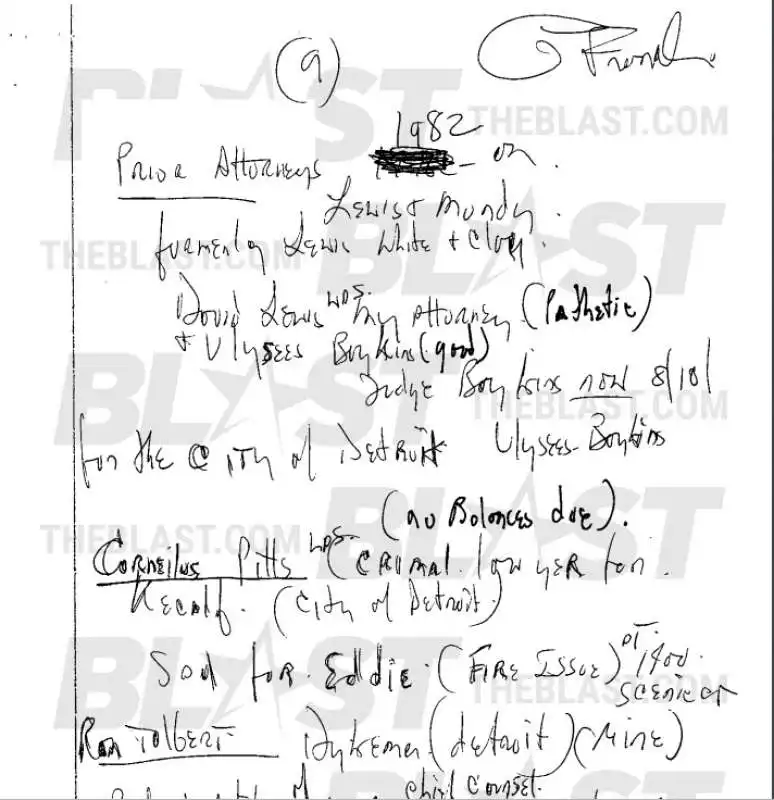 (9)
1982 - on.
Prior Attorneys
Lewis & Munday.
formerly Lewis White & Clay.
David Lewis was. my Attorney. (Pathetic)
& Ulysees Boykins (good)
Judge Boykins now 8/10/
for the City of Detroit Ulysees Boykins
(no Balances due).
Corneilus Pitts was. (Crimal. lawyer for.
Kecalf. (City of Detroit.)
for. Eddie. (FIRE ISSUE) at 1400.
scenic ct
Ron Tolbert Dykemer (detroit) (Mine)
chief Counsel.
BLAST
THEBLAST.COM
THEBLAST.COM
BLAST
BLAST
THEBLAST.COM
THEBLAST.COM
BLAST
BLAST
THEBLAST.COM
BLAST